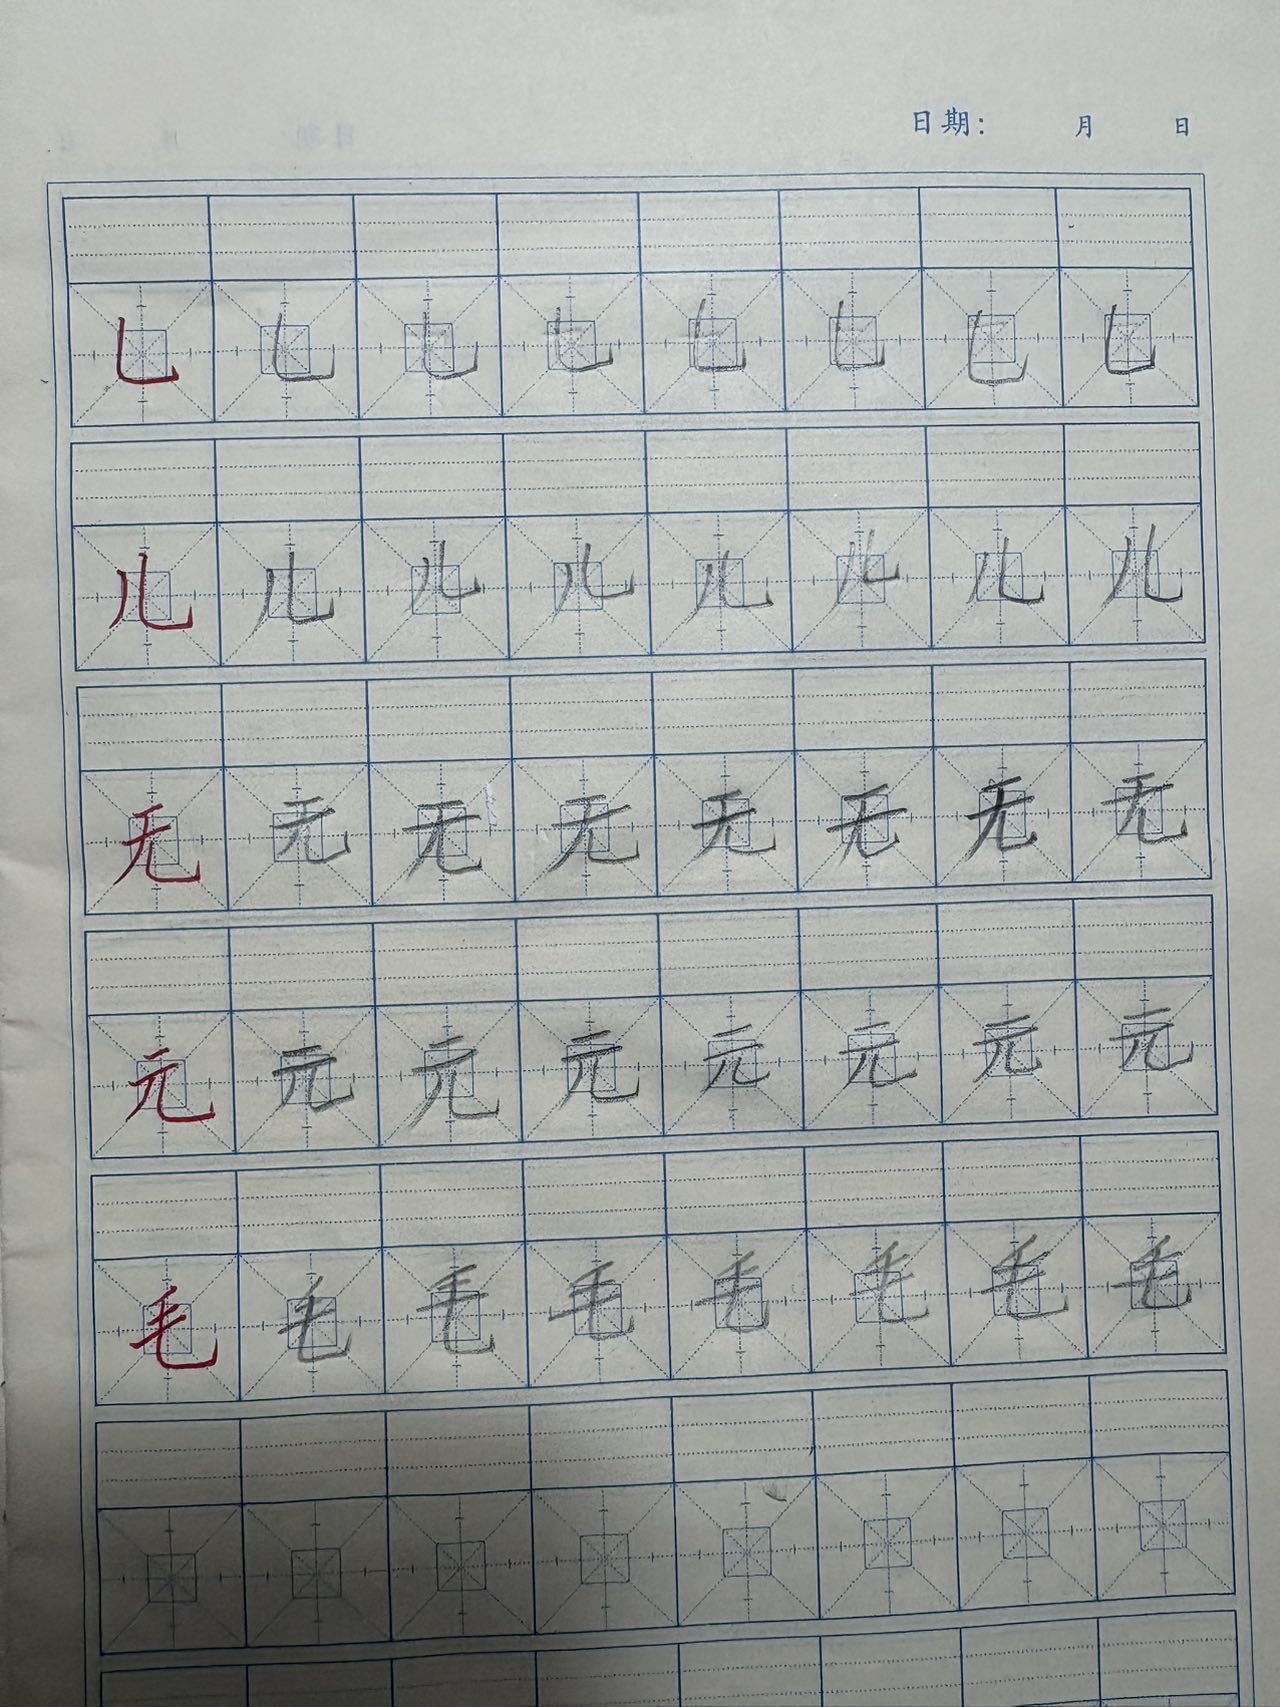 日期： 月 日
乚 乚 乚 乚 乚 乚 乚 乚
儿 儿 儿 儿 儿 儿 儿 儿
无 无 无 无 无 无 无 无
元 元 元 元 元 元 元 元
毛 毛 毛 毛 毛 毛 毛 毛